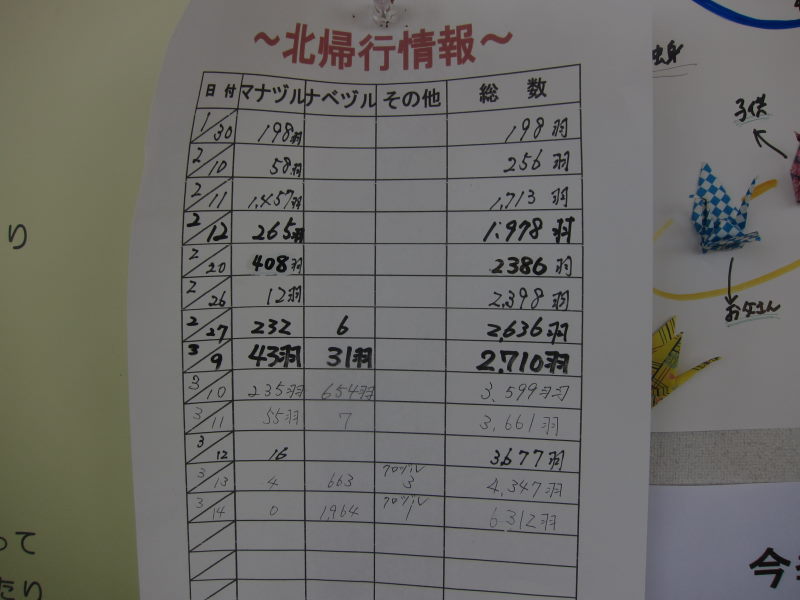 ～北帰行情報～
日付 マナヅル ナベヅル その他 総数
1/30 198羽 198羽
2/10 58羽 256羽
2/11 1,457羽 1,713羽
2/12 265羽 1,978羽
2/20 408羽 2386羽
2/26 12羽 2,398羽
2/27 232 6 2,636羽
3/9 43羽 31羽 2,710羽
3/10 235羽 654羽 3,599羽
3/11 55羽 7 3,661羽
3/12 16 3677羽
3/13 4 663 クロヅル 3 4,347羽
3/14 0 1,964 クロヅル 1 6,312羽
独身
子供
お父さん
り
って
たり
今